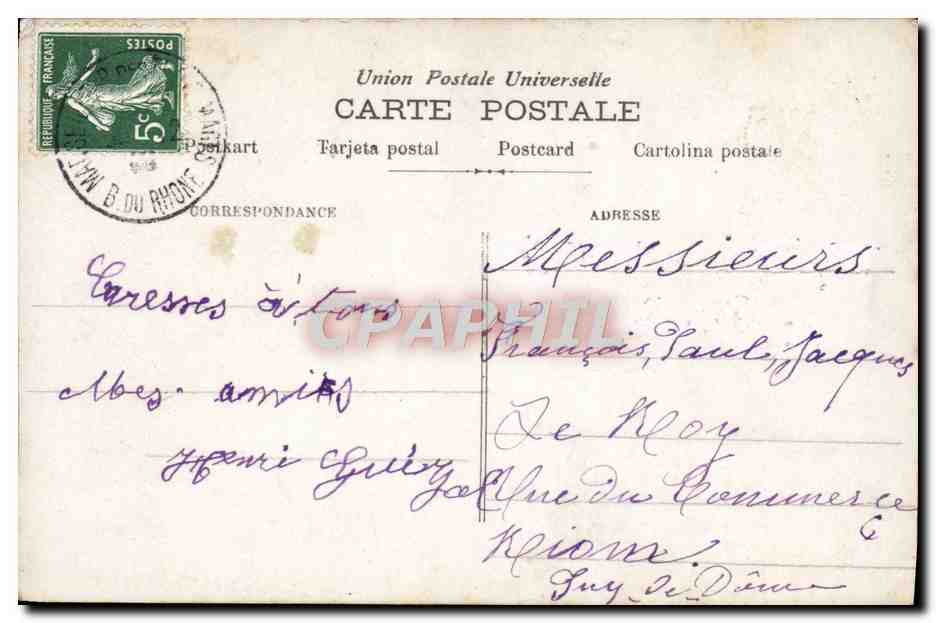 REPUBLIQUE FRANÇAISE
POSTES
5c
B. DU RHONE
Union Postale Universelle
CARTE POSTALE
Postkart Tarjeta postal Postcard Cartolina postale
CORRESPONDANCE
ADRESSE
Caresses à tous
Mes amis
Henri
Messieurs
François, Paul, Jacques
Le Roy
Rue du Commerce 6
Riom.
Puy-de-Dôme
CPAPHIL